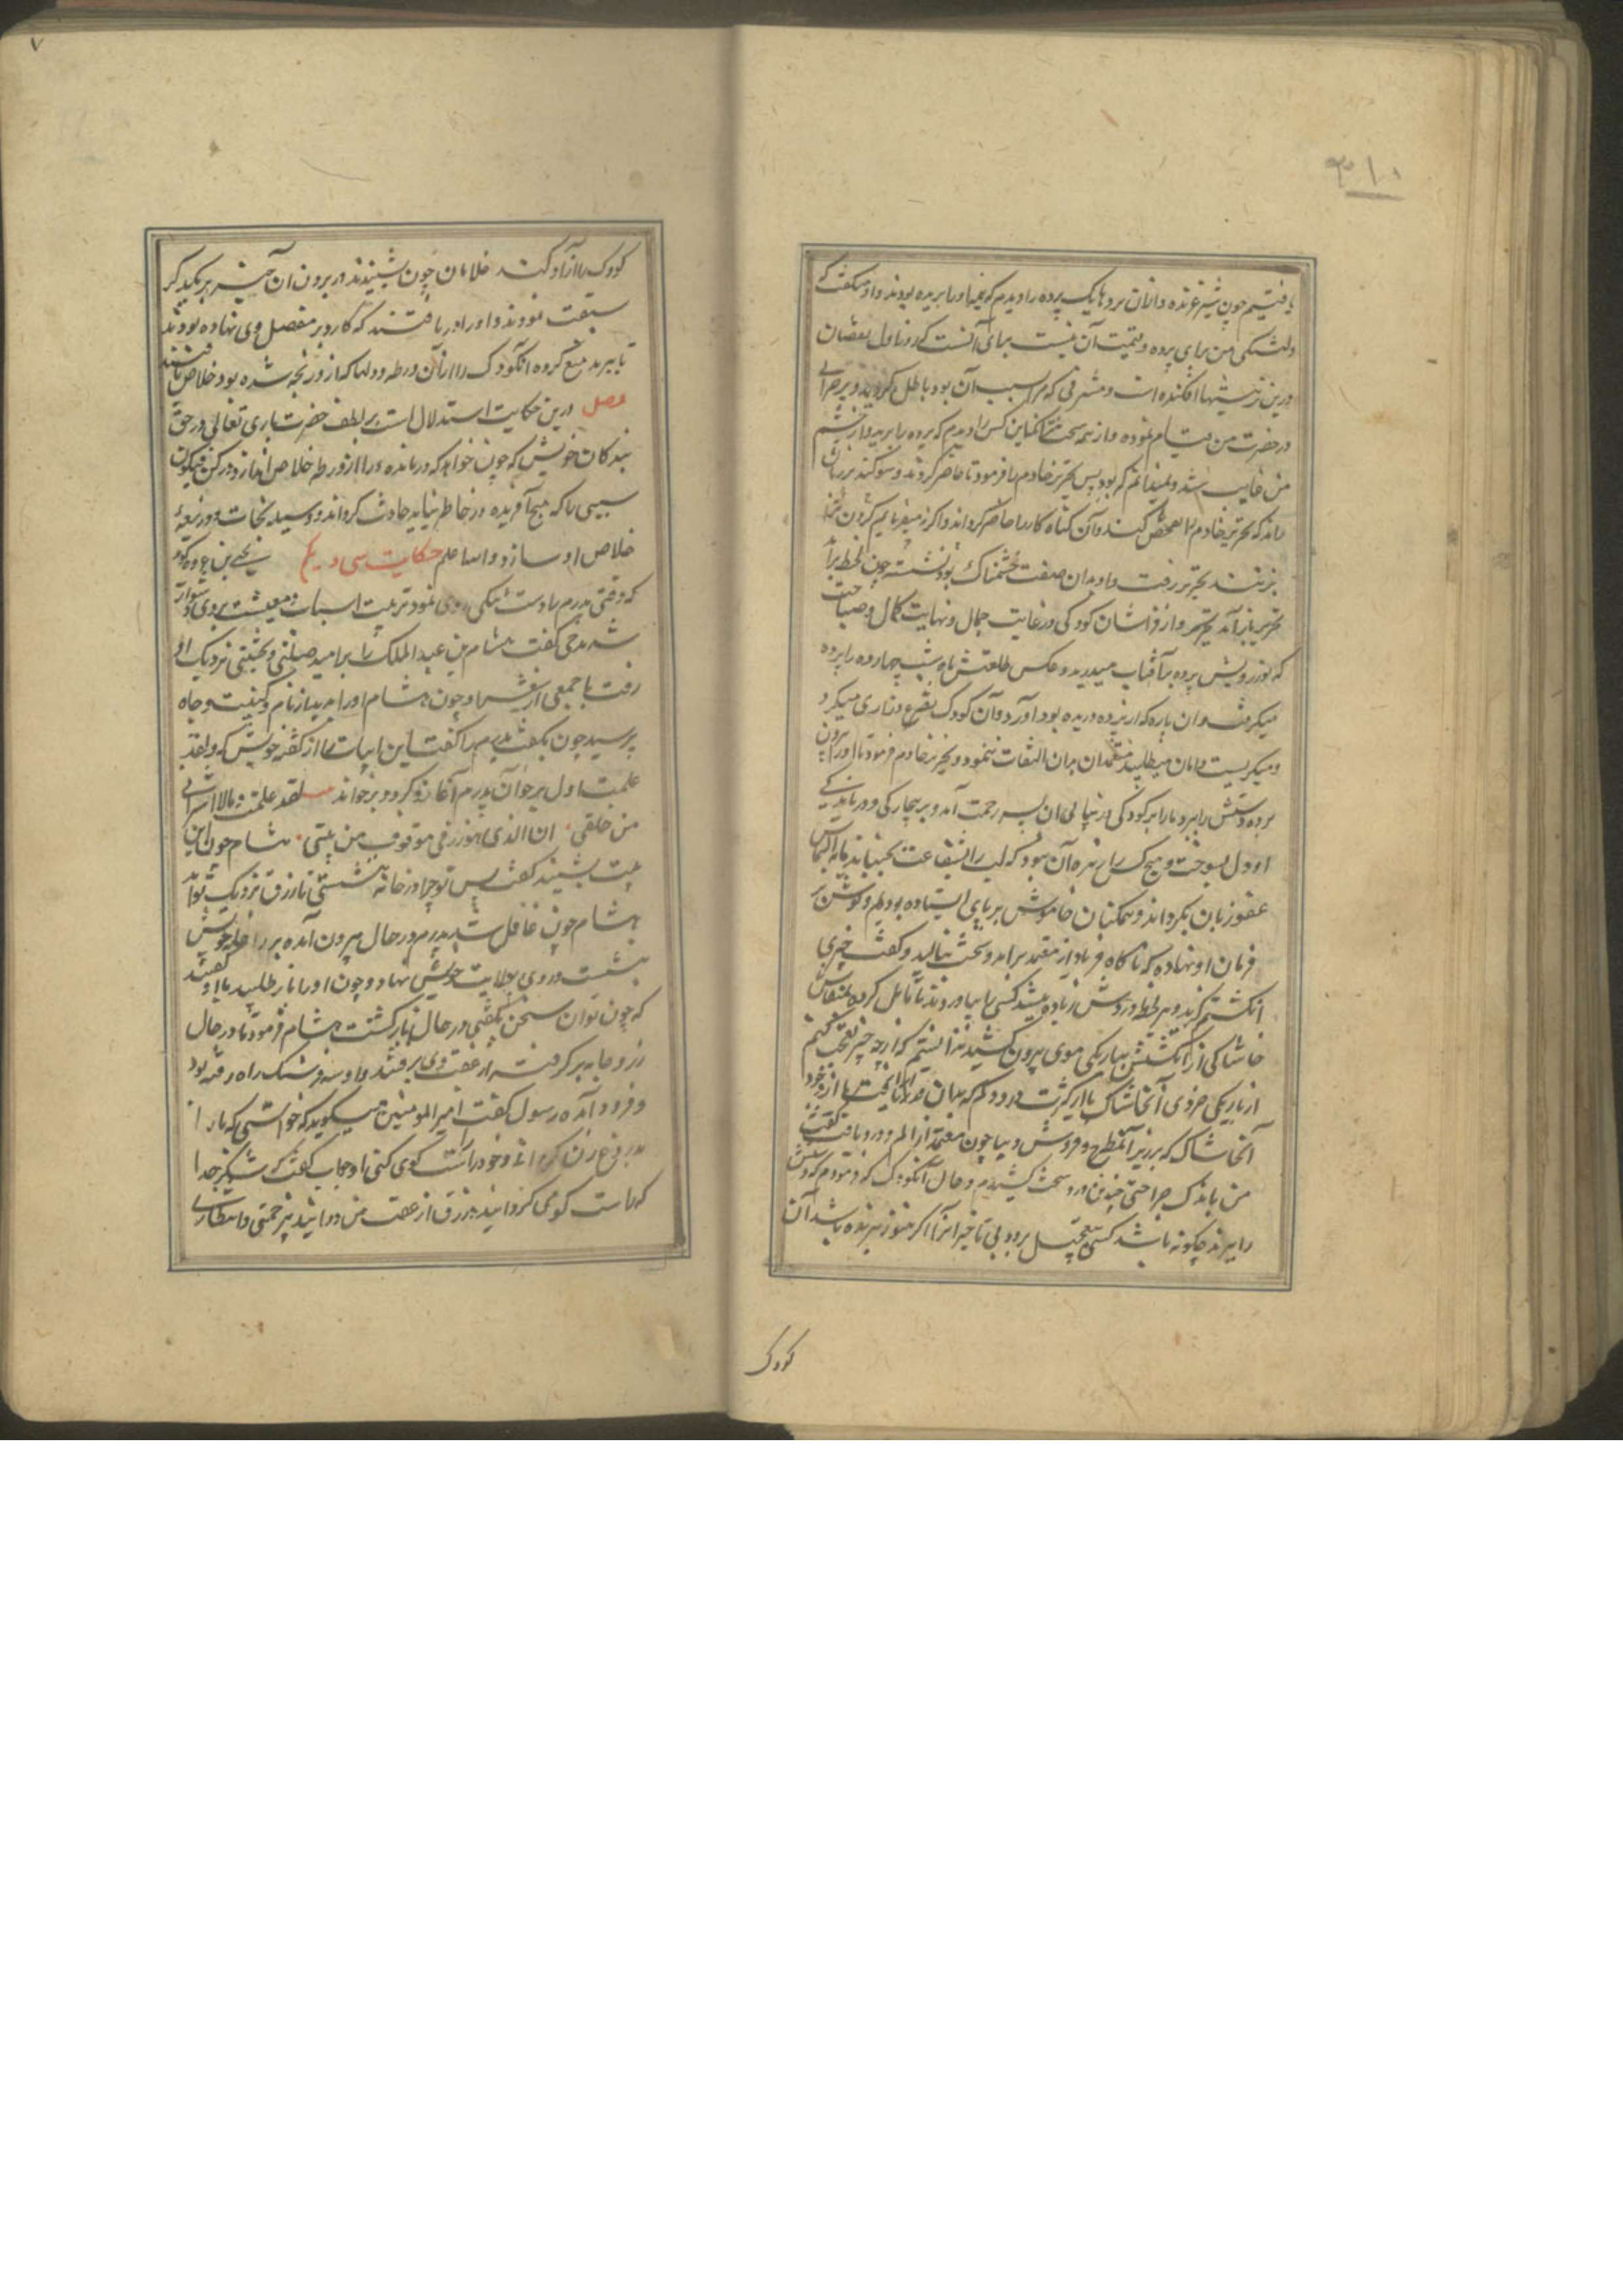 ۳۱۰
یافتیم چون شیر غرنده و از آن پردها یک پرده را دیدم که بریده بودند و او میگفت که
دلتنگی من برای پرده و قیمت آن نیست برای آنست که در اول نقصان
درین است و که سبب آن بود باطل
در حضرت من نموده و از همه سخت این کس را دیدم که پرده را برید و از چشم
من غایب شد و که بود پس تحریر خادم را فرمود تا حاضر کردند و سوکند بر زبان
راند که تحریر خادم تفحص کند و آن کناه کار را حاضر کرداند و اکرنه بفرمایم کردن
بزنند تحریر برفت و او بدان صفت خشمناک بود نشسته چون لحظه برآمد
تحریر باز آمد و از فراشان کودکی در غایت جمال و نهایت کمال و صباحت
که نور رویش پرده آفتاب میدرید و عکس طلعتش ماه شب چهارده را پرده
میکرفت و آن پاره که از پرده دریده بود آورد و آن کودک تضرع و زاری میکرد
و میکریست و امان میطلبید معتمد بدان التفات ننمود و تحریر خادم فرمود تا او را بیرون
برده دستش را ببرد ما را بر کودکی و زیبائی آن پسر رحمت آمد و بر بیچارکی و درماندکی
او دل بسوخت و هیچ کس را زهره آن نبود که لب را بشفاعت بجنباند یا بالتماس
عفو زبان بکرداند و همکنان خاموش بر پای ایستاده بودیم و کوش بر
فرمان او نهاده که ناکاه فریاد از معتمد برآمد و سخت بنالید و کفت چیزی
انکشتم کزید و هر لحظه دردش زیاده میشد کسی را بیاوردند تا تامل کرده بمنقاش
خاشاکی از انکشتش بباریکی موی بیرون کشید ندانستم که از چه چیز تعجب کنیم
از باریکی و خردی آن خاشاک یا از کثرت درد و الم که بدان مقدار یا از وجود
آن خاشاک که بر زبر آن مطرح و فروش دیبا چون معتمد از الم و درد یافت کفت
من باندک جراحتی چندین درد سخت کشیدم و حال آن کودک که فرمودم که دستش
را ببرند چکونه باشد کسی بتعجیل برود بی تاخیر اکر هنوز نبریده باشند آن
کودک
۷
کودک را آزاد کنند غلامان چون شنیدند در برون آن بر یکدیکر
سبقت نمودند و او را دریافتند که کارد بر مفصل وی نهاده بودند
تا ببرند منع کرده آن کودک را از آن ورطه و دلها که از او رنجه شده بود خلاص یافتند
فصل درین حکایت استدلال است بر لطف حضرت باری تعالی در حق
بندکان خویش که چون خواهد که درمانده را از ورطه خلاص اندازد در کن فیکون
سببی را که هیچ آفریده در خاطر نیاید حادث کرداند و وسیله نجات و ذریعهٔ
خلاص او سازد والله اعلم حکایت سی و یکم یحیی بن عروه کوید
که وقتی پدرم را دست تنکی روی نمود ترتیب اسباب معیشت بر وی دشوار
شد مدحی کفت هشام بن عبدالملک را بر امید صلتی و بخششی نزدیک او
رفت با جمعی از شعرا و چون هشام او را بدید از نام و کنیت و جاه
پرسید چون بکفت پدرم را کفت این ابیات را از کفته خویش که و لقد
علمت اول برخوان پدرم آغاز کرد و برخواند لقد علمت و مالاسراف
من خلقی ان الذی هو رزقی سوف من یاتینی هشام چون این
بیت بشنید کفت پس تو چرا در خانه ننشستی تا رزق نزدیک تو آید
هشام چون غافل شد پدرم در حال بیرون آمده بر راحله خویش
نشست و روی بولایت خویش نهاد و چون او را باز طلبید با او کفتند
که چون تو آن سخن بکفتی در حال باز کشت هشام فرمود تا در حال
زر و جامه برکرفته از عقب وی برفتند و او سه فرسنک راه رفته بود
و فرود آمده رسول کفت امیرالمومنین میکوید که خواستی که مارا
بدروغ زن کردانی و خود راست کوی کنی او جواب کفت که شکر خدا
که راست کویم کردانید و رزق از عقب من دوانید بی زحمتی و انتظاری